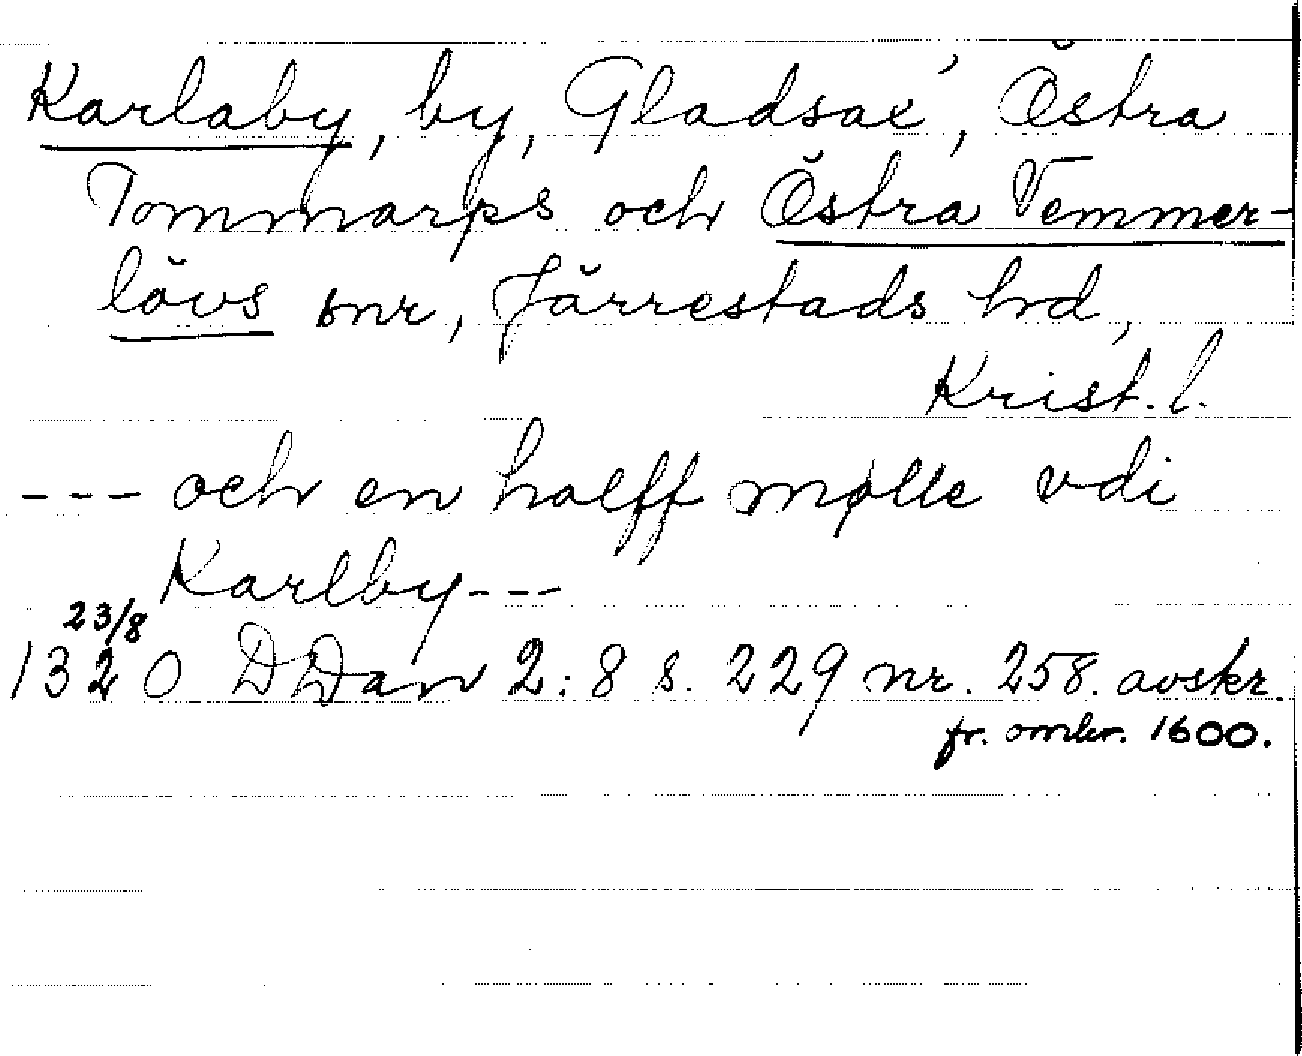 Karlaby, by, Gladsax', Östra
Tommarps och Östra Vemmer-
lövs snr, Järrestads hd,
Krist. l.
--- och en halff mølle vdi
Karlby---
23/8
1320 DDan 2:8 s. 229 nr. 258. avskr.
fr. omkr. 1600.